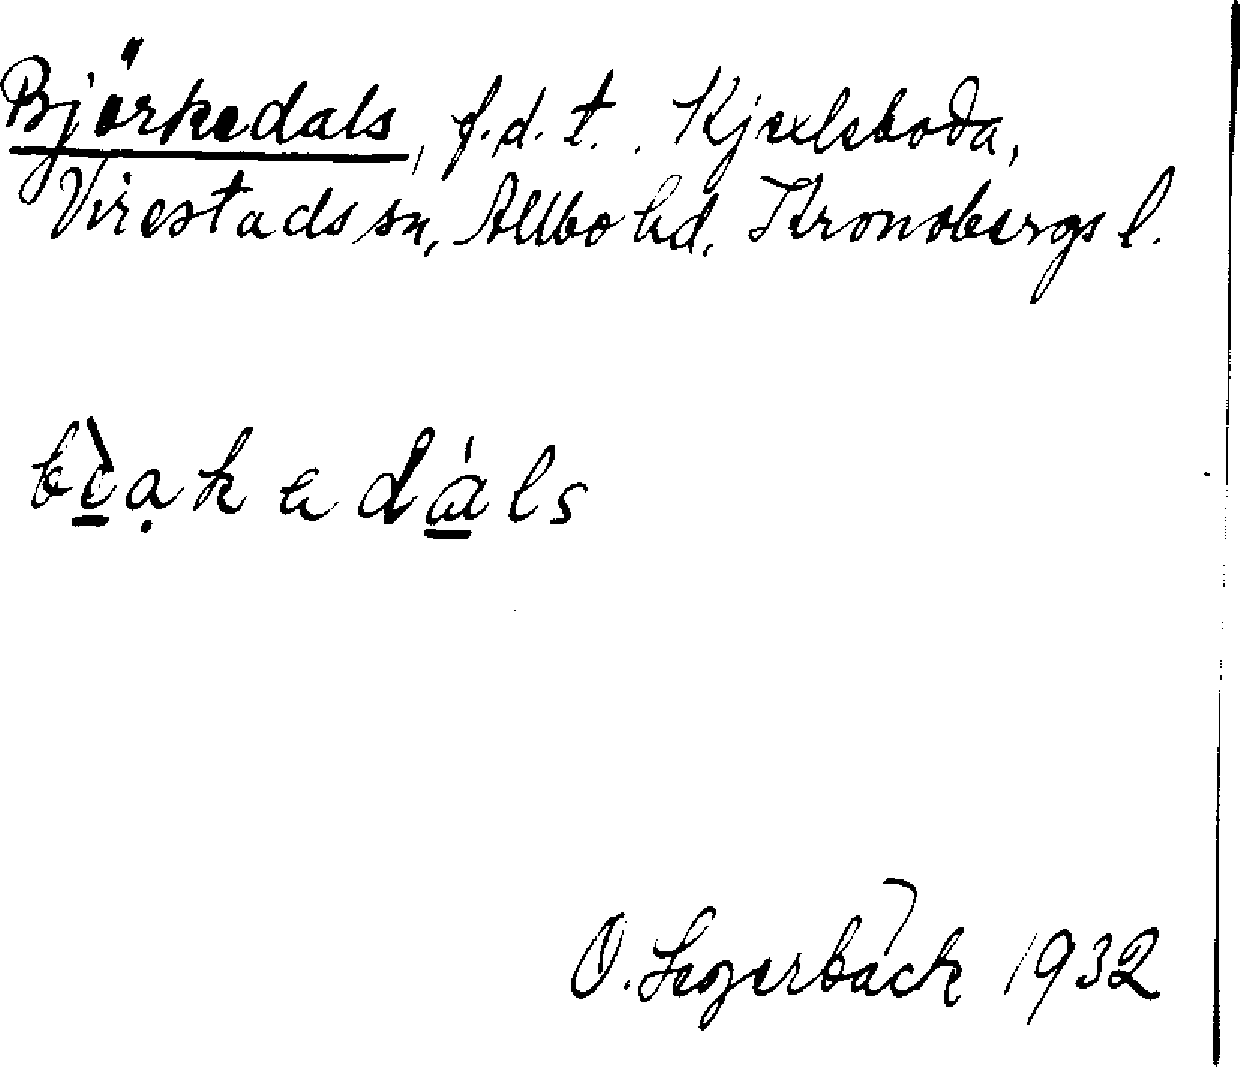 Björkedals, f.d.t. Kjexleboda,
Virestads sn, Allbo hd, Kronobergs l.
O. Segerbäck 1932